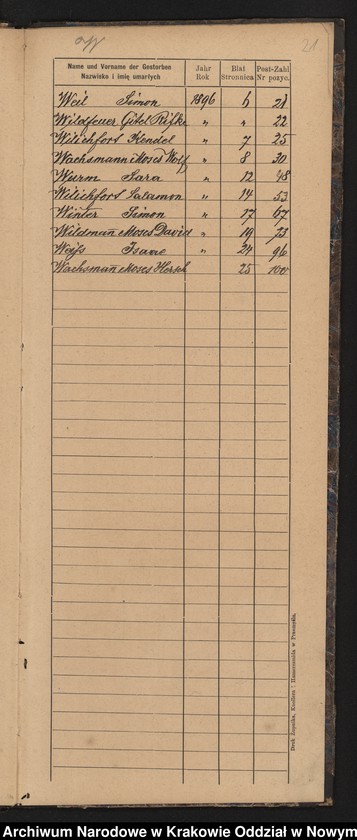 W
21
Name und Vorname der Gestorben Jahr Blat Post-Zahl
Nazwisko i imię umarłych Rok Stronnica Nr pozyc.
Weil Simon 1896 21
Wildfeuer Gitel Rifke " " 22
Wilichfort Hendel " 7 25
Wachsmann Moses Wolf " 8 30
Wurm Sara " 12 48
Wilichfort Salamon " 14 53
Winter Simon " 17 67
Wildman Moses David " 19 73
Weiss Isaac " 24 96
Wachsman Moses Hersch 25 100
Druk Żupnika, Knollera i Hammerschmida w Przemyślu.
Archiwum Narodowe w Krakowie Oddział w Nowym